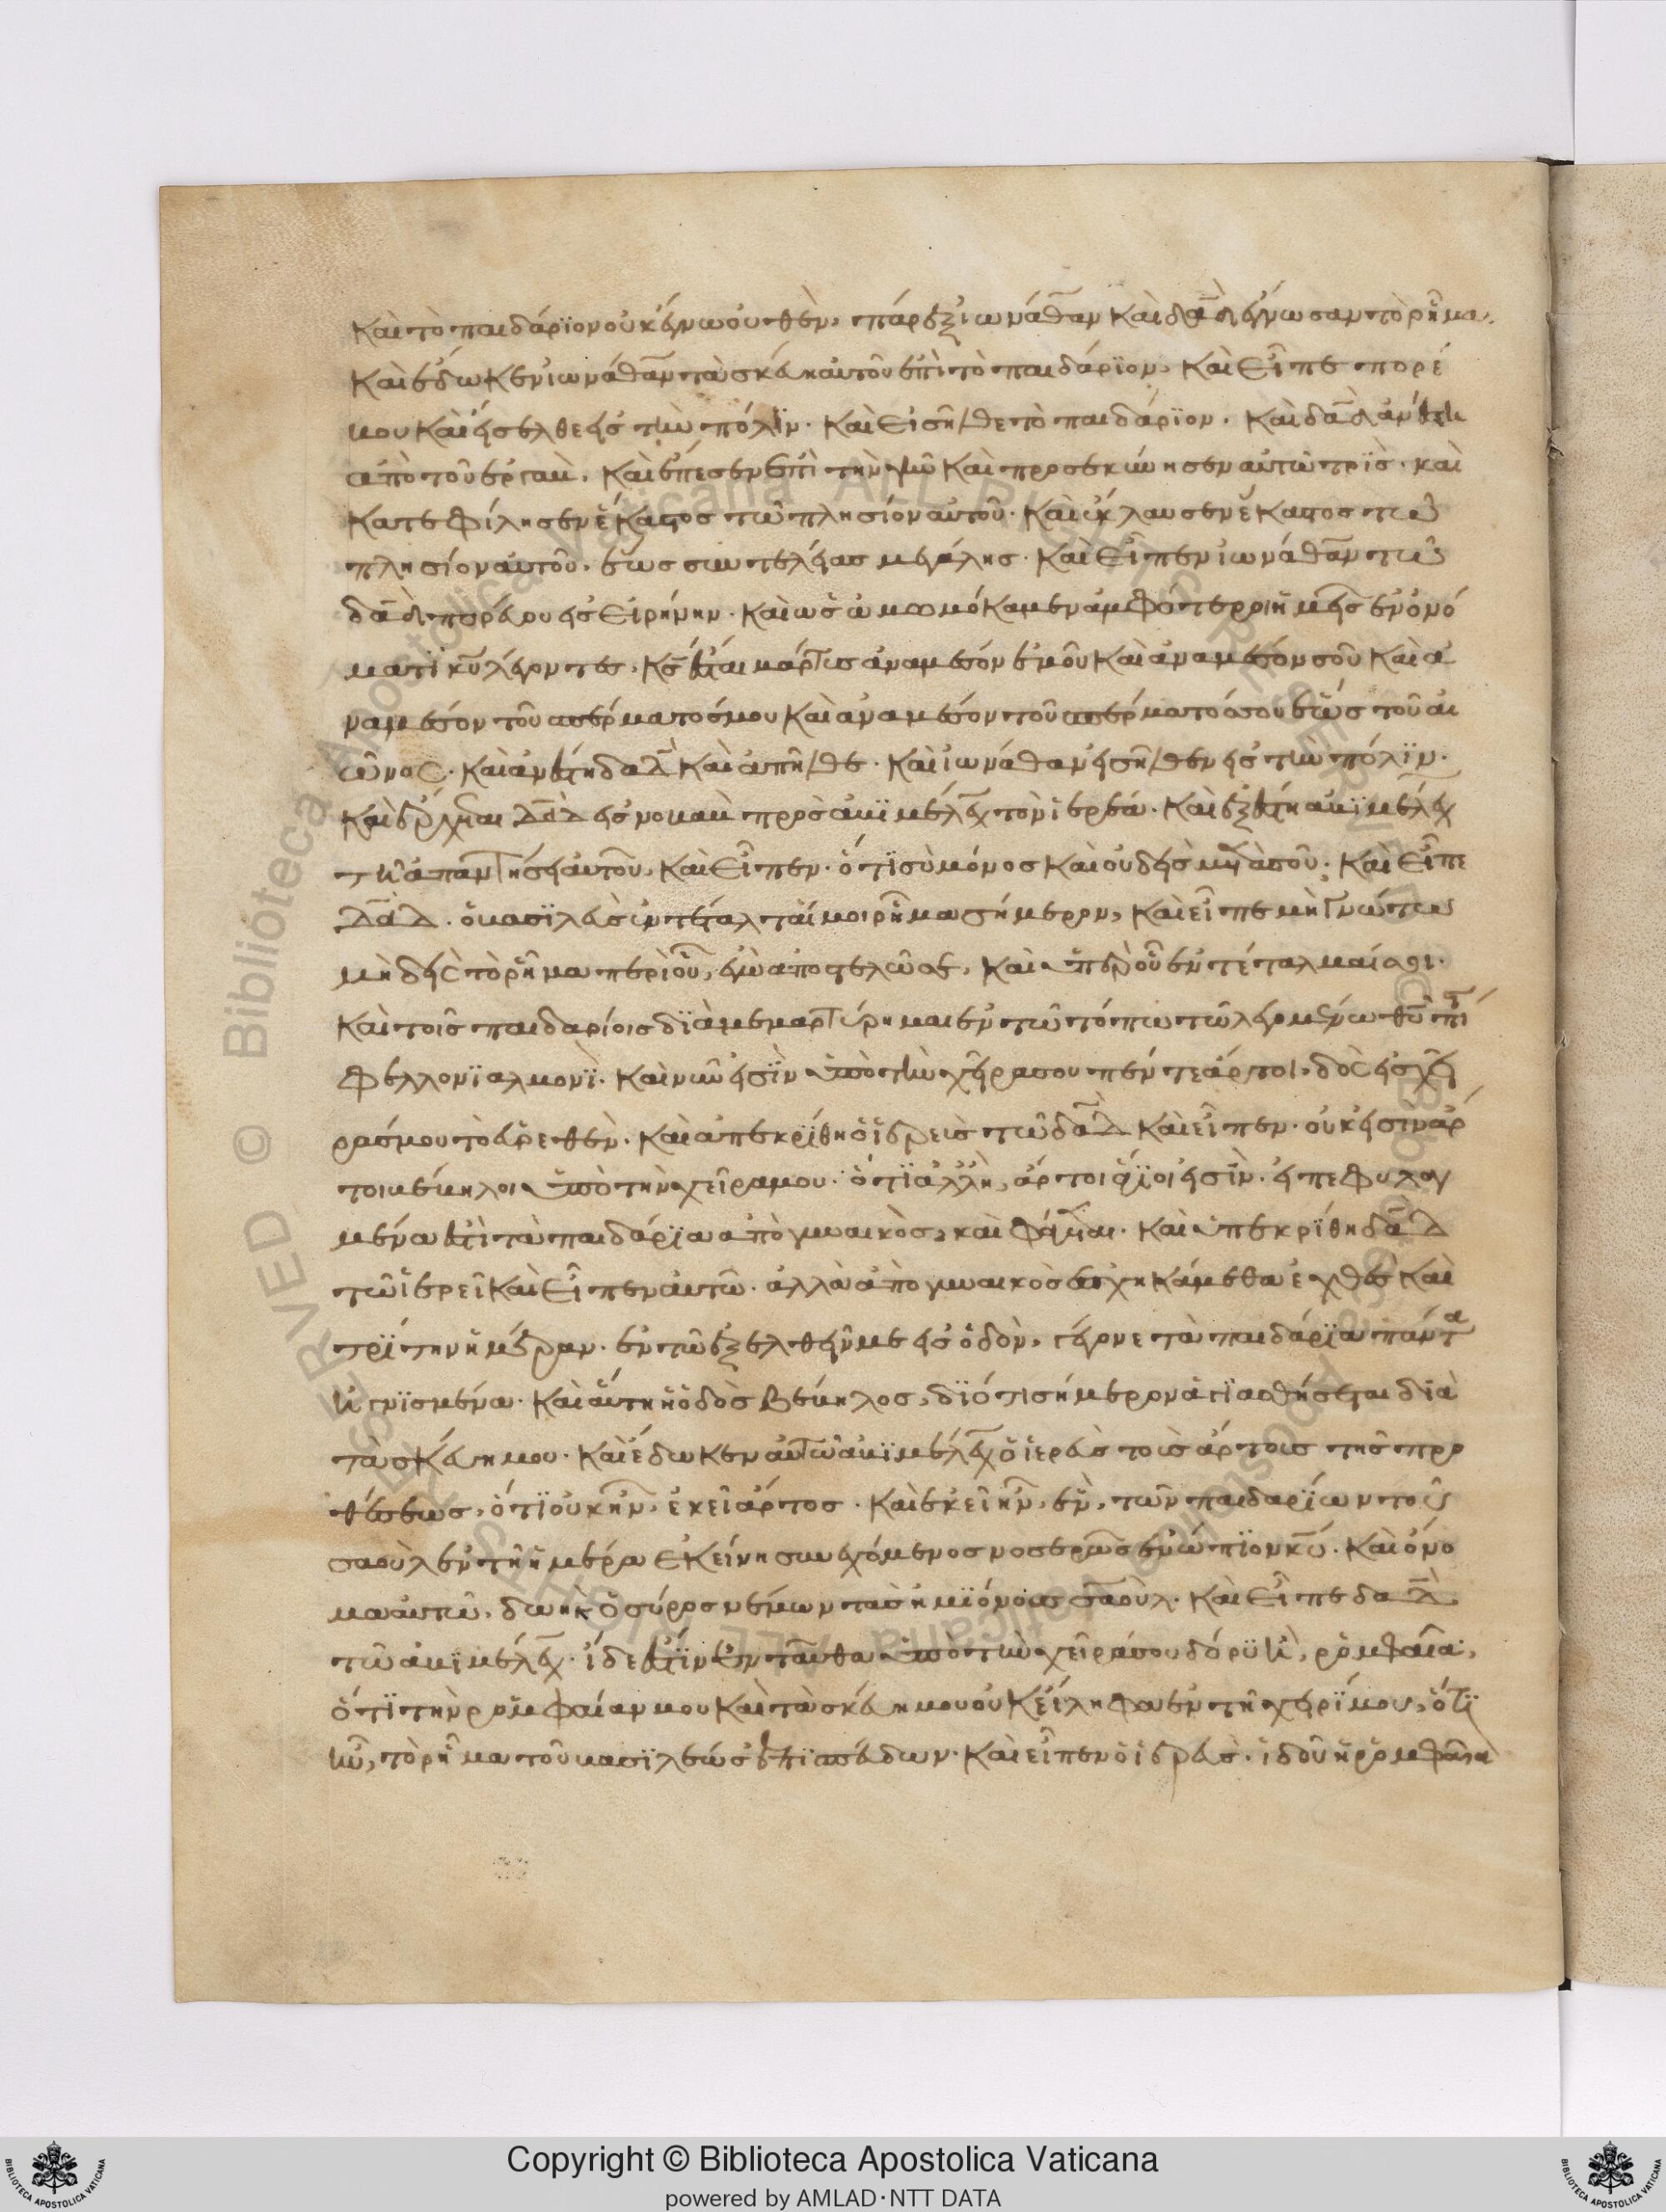 Καὶ τὸ παιδάριον οὐκ ἔγνω οὐθὲν, πάρεξ ἰωνάθαν καὶ δαδ ἔγνωσαν τὸ ρῆμα.
Καὶ ἔδωκεν ἰωνάθαν τὰ σκεύη αὐτοῦ ἐπὶ τὸ παιδάριον, καὶ εἶπε πορεύ
ου καὶ εἴσελθε εἰς τὴν πόλιν. καὶ εἰσῆλθε τὸ παιδάριον. καὶ δαδ ἀνέστη
ἀπὸ τοῦ ἐργαβ. καὶ ἔπεσεν ἐπὶ τὴν γῆν καὶ προσεκύνησεν αὐτῶ τρὶς. καὶ
κατεφίλησεν ἕκαστος τῶ πλησίον αὐτοῦ. καὶ ἔκλαυσεν ἕκαστος τῶ
πλησίον αὐτοῦ. ἕως συντελείας μεγάλης. καὶ εἶπεν ἰωνάθαν τῶ
δαδ πορεύου εἰς εἰρήνην. καὶ ὡς ὀμωμόκαμεν ἀμφότεροι ἡμεῖς ἐν ὀνό
ματι κυ λέγοντες, κς ἔσται μάρτυς ἀναμέσον ἐμοῦ καὶ ἀναμέσον σοῦ καὶ ἀ
ναμέσον τοῦ σπέρματός μου καὶ ἀναμέσον τοῦ σπέρματός σου ἕως τοῦ αἰ
ῶνος. καὶ ἀνέστη δαδ καὶ ἀπῆλθε. καὶ ἰωνάθαν εἰσῆλθεν εἰς τὴν πόλιν.
Καὶ ἔρχεται δαδ εἰς νομβὰ πρὸς ἀβιμέλεχ τὸν ἱερέα. καὶ ἐξέστη ἀβιμέλεχ
τῆ ἀπαντήσει αὐτοῦ, καὶ εἶπεν. ὅτι σὺ μόνος καὶ οὐδεὶς μετὰ σοῦ. καὶ εἶπε
δαδ. ὁ βασιλεὺς ἐντέταλταί μοι ρῆμα σήμερον, καὶ εἶπε μὴ γνώτω
μηδεὶς τὸ ρῆμα περὶ οὗ, ἐγὼ ἀποστελῶ σε, καὶ ὑπὲρ οὗ ἐντέταλμαί σοι.
καὶ τοῖς παιδαρίοις διαμεμαρτύρημαι ἐν τῶ τόπω τῶ λεγομένω θυ πίστις
φελλονι αλμονὶ. καὶ νῦν εἰσὶν ὑπὸ τὴν χεῖρα σου πέντε ἄρτοι, δὸς εἰς χεῖ
ράς μου τὸ εὑρεθὲν. καὶ ἀπεκρίθη ὁ ἱερεὺς τῶ δαδ καὶ εἶπεν. οὐκ εἰσὶν ἄρ
τοι βέβηλοι ὑπὸ τὴν χεῖρα μου. ὅτι ἀλλ' ἢ, ἄρτοι ἅγιοι εἰσὶν. εἰ πεφυλαγ
μένα ἐστὶ τὰ παιδάρια ἀπὸ γυναικὸς, καὶ φάγεται. καὶ ἀπεκρίθη δαδ
τῶ ἱερεῖ καὶ εἶπεν αὐτῶ. ἀλλὰ ἀπὸ γυναικὸς ἀπεσχήμεθα ἐχθὲς καὶ
τρίτην ἡμέραν. ἐν τῶ ἐξελθεῖν με εἰς ὁδὸν, γέγονε τὰ παιδάρια πάντα
ἡγνισμένα. καὶ αὕτη ἡ ὁδὸς βέβηλος, διότι σήμερον ἁγιασθήσεται διὰ
τὰ σκεύη μου. καὶ ἔδωκεν αὐτῶ ἀβιμέλεχ ὁ ἱερεὺς τοὺς ἄρτους τῆς προ
θέσεως, ὅτι οὐκ ἦν, ἐκεῖ ἄρτος. καὶ ἐκεῖ ἦν, ἓν, τῶν παιδαρίων τοῦ
σαοὺλ ἐν τῆ ἡμέρα ἐκείνη συνεχόμενος νεσσαρὰν ἐνώπιον κυ. καὶ ὄνο
μα αὐτῶ, δωὴκ ὁ σύρος νέμων τὰς ἡμιόνους σαοὺλ. καὶ εἶπε δαδ
τῶ ἀβιμέλεχ. ἴδε ἔστιν ἐνταῦθα ὑπὸ τὴν χεῖρά σου δόρυ ἢ, ρομφαία,
ὅτι τὴν ρομφαίαν μου καὶ τὰ σκεύη μου οὐκ εἴληφα ἐν τῆ χειρί μου, ὅτι
ἦν, τὸ ρῆμα τοῦ βασιλέως ἐπισπεύδων. καὶ εἶπεν ὁ ἱερεὺς. ἰδοῦ ἡ ρομφαία
Copyright © Biblioteca Apostolica Vaticana
powered by AMLAD·NTT DATA